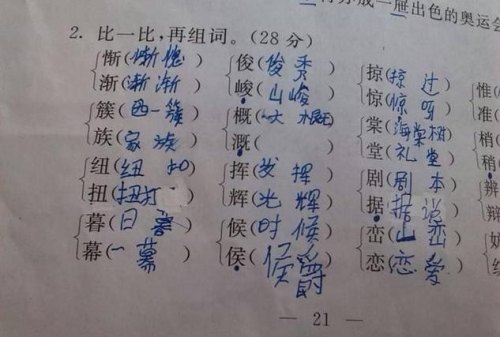 成一册出色的奥运会
2. 比一比,再组词。(28 分)
惭(惭愧) 俊(俊秀) 掠(掠过) 惟(
渐(渐渐) 峻(山峻) 惊(惊呀) 准(
簇(一簇) 概(大概) 棠(海棠树) 梢(
族(家族) 溉( ) 堂(礼堂) 稍(
纽(纽扣) 挥(发挥) 剧(剧本) 辨
扭(扭打) 辉(光辉) 据(据说) 辩
暮(日暮) 候(时候) 峦(山峦)
幕(一幕) 侯(侯爵) 恋(恋爱)
— 21 —